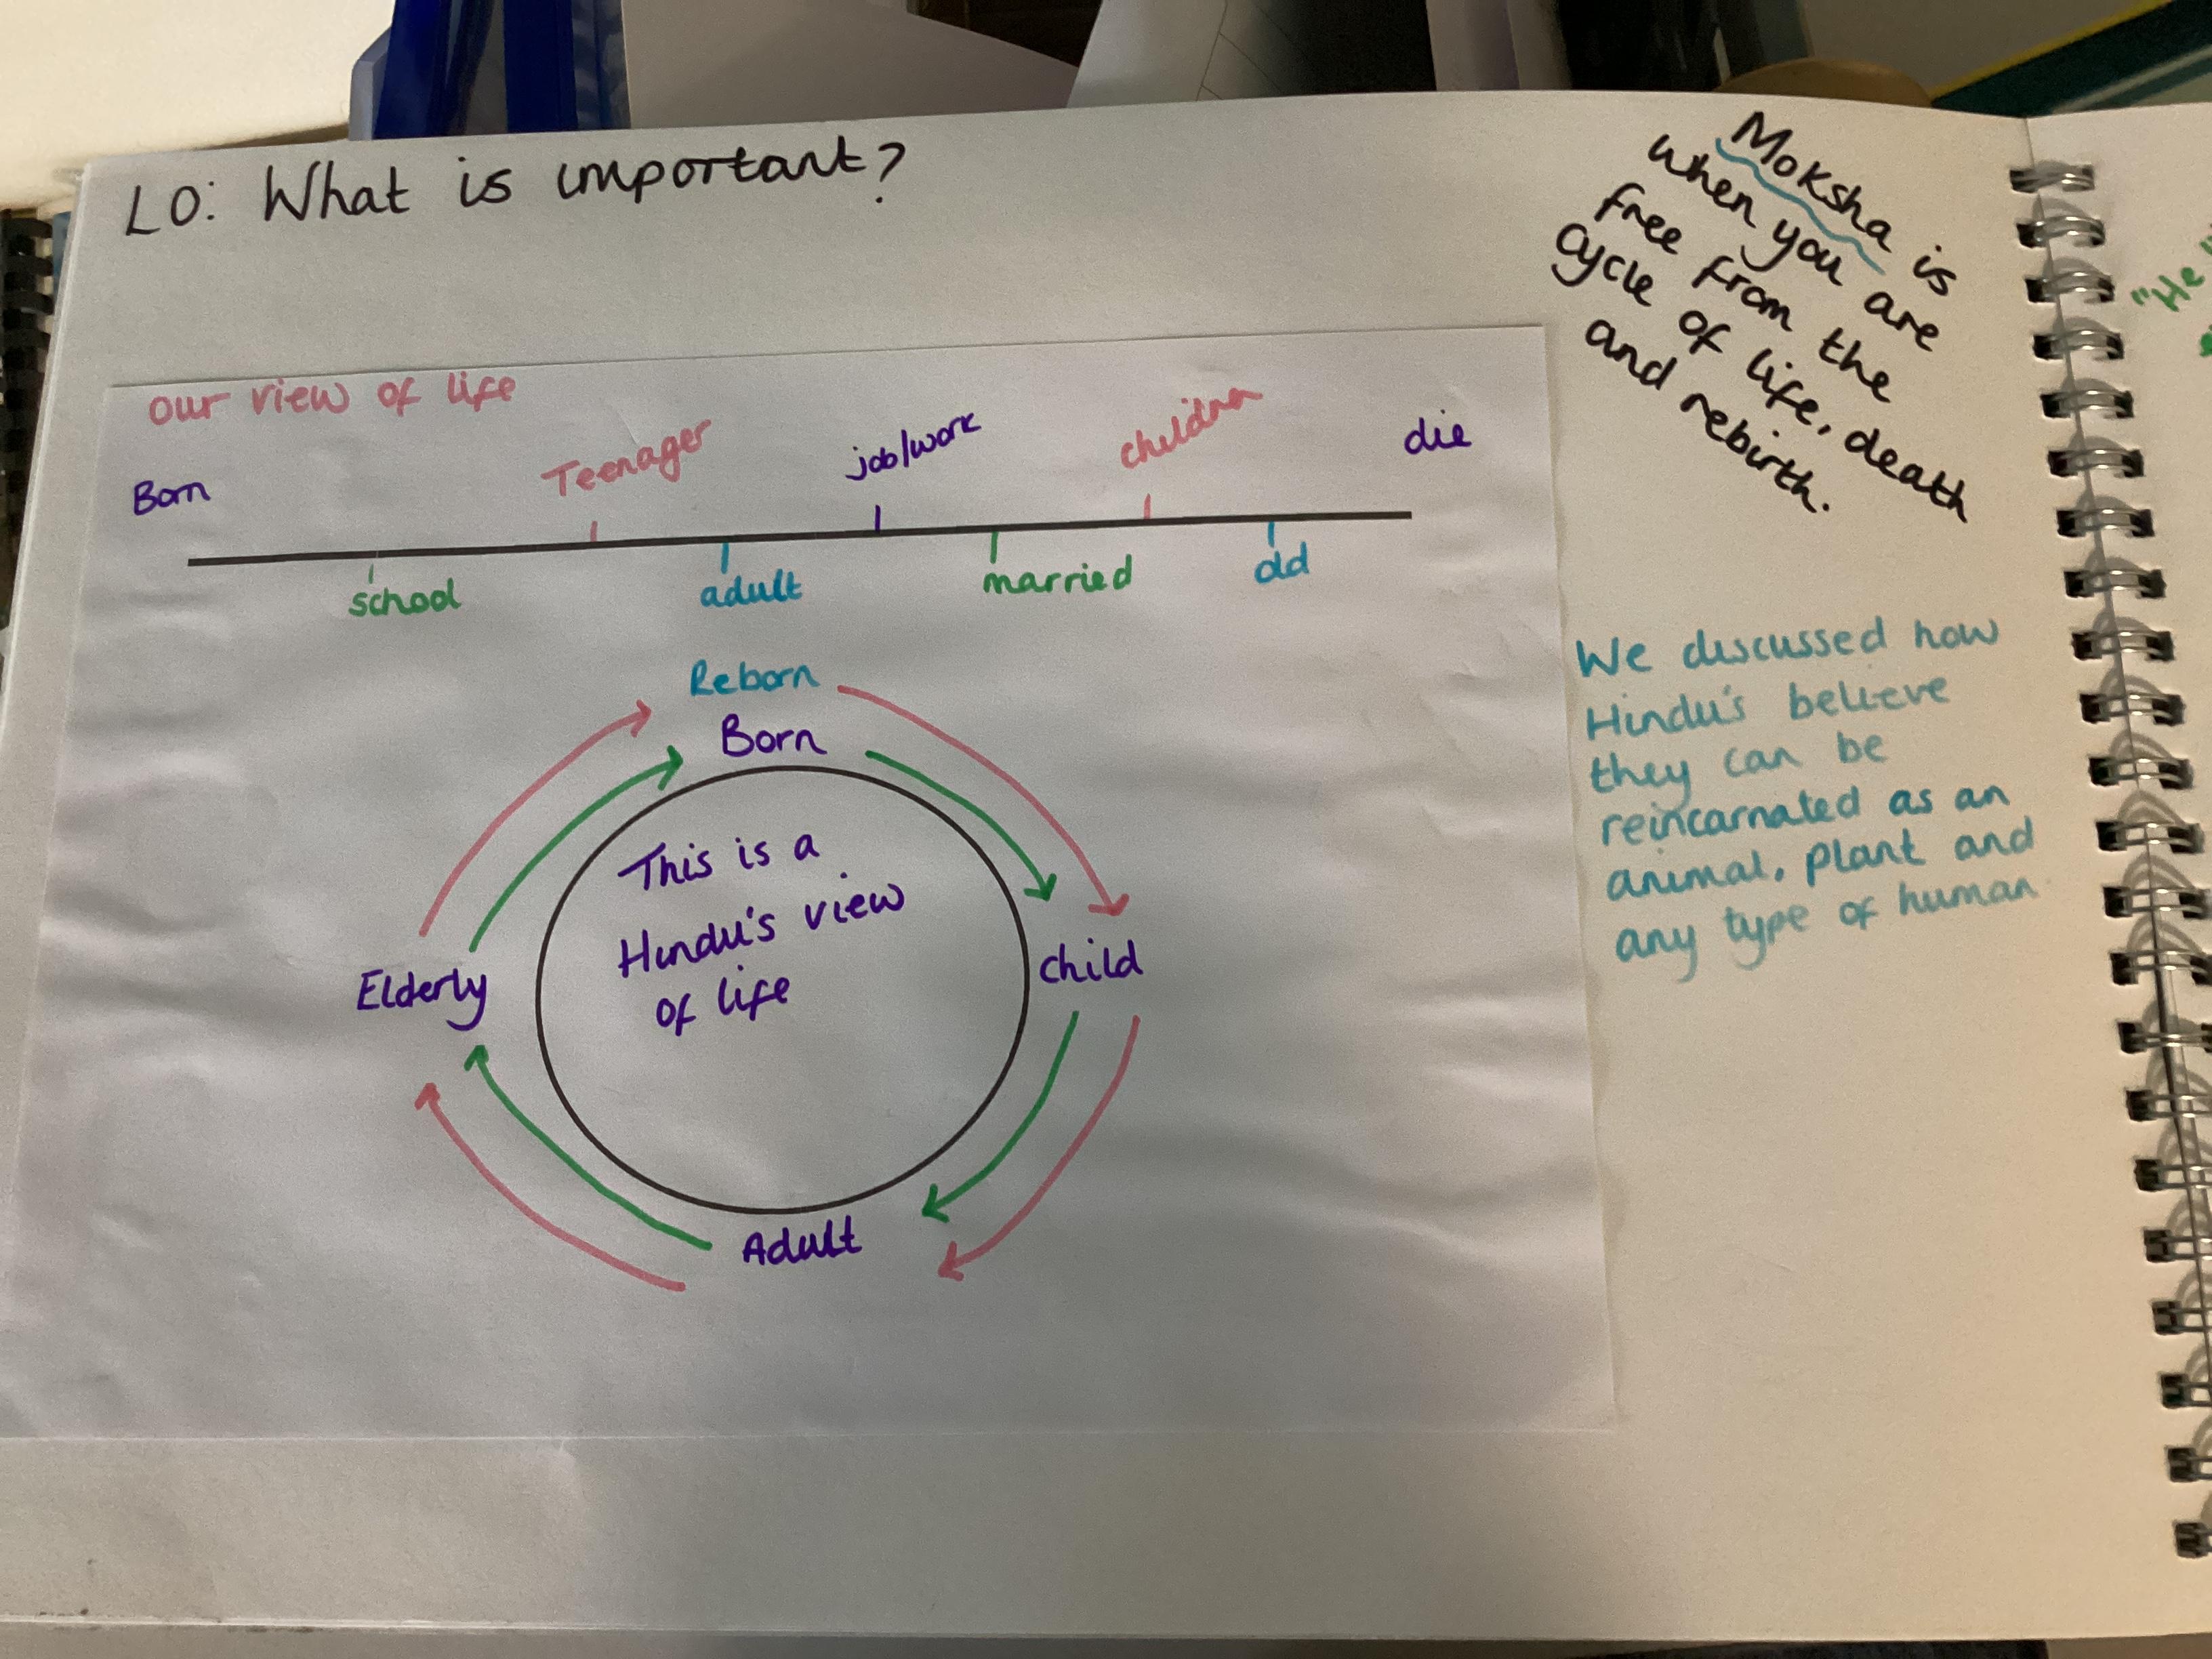 LO: What is important?
Moksha is
when you are
free from the
cycle of life, death
and rebirth.
our view of life
Born
Teenager
job/work
children
die
school
adult
married
old
Reborn
Born
This is a
Hindu's view
of life
Elderly
child
Adult
We discussed how
Hindu's believe
they can be
reincarnated as an
animal, plant and
any type of human
"He